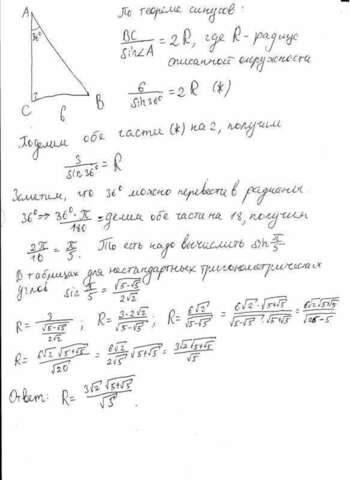 A
По теореме синусов:
36°
BC/sin∠A = 2R, где R - радиус
описанной окружности
C 6 B
6/sin 36° = 2R (*)
Поделим обе части (*) на 2, получим
3/sin 36° = R
Заметим, что 36° можно перевести в радианы
36° => 36°·π/180 = делим обе части на 18, получим
2π/10 = π/5. То есть надо вычислить sin π/5
В таблицах для нестандартных тригонометрических
углов sin π/5 = √(5-√5)/(2√2)
R = 3/(√(5-√5)/(2√2)); R = 3·2√2/√(5-√5); R = 6√2/√(5-√5) = 6√2·√(5+√5)/(√(5-√5)·√(5+√5)) = 6√2√(5+√5)/√(25-5)
R = 6√2√(5+√5)/√20 = 6√2/(2√5)·√(5+√5) = 3√2√(5+√5)/√5
Ответ: R = 3√2·√(5+√5)/√5.